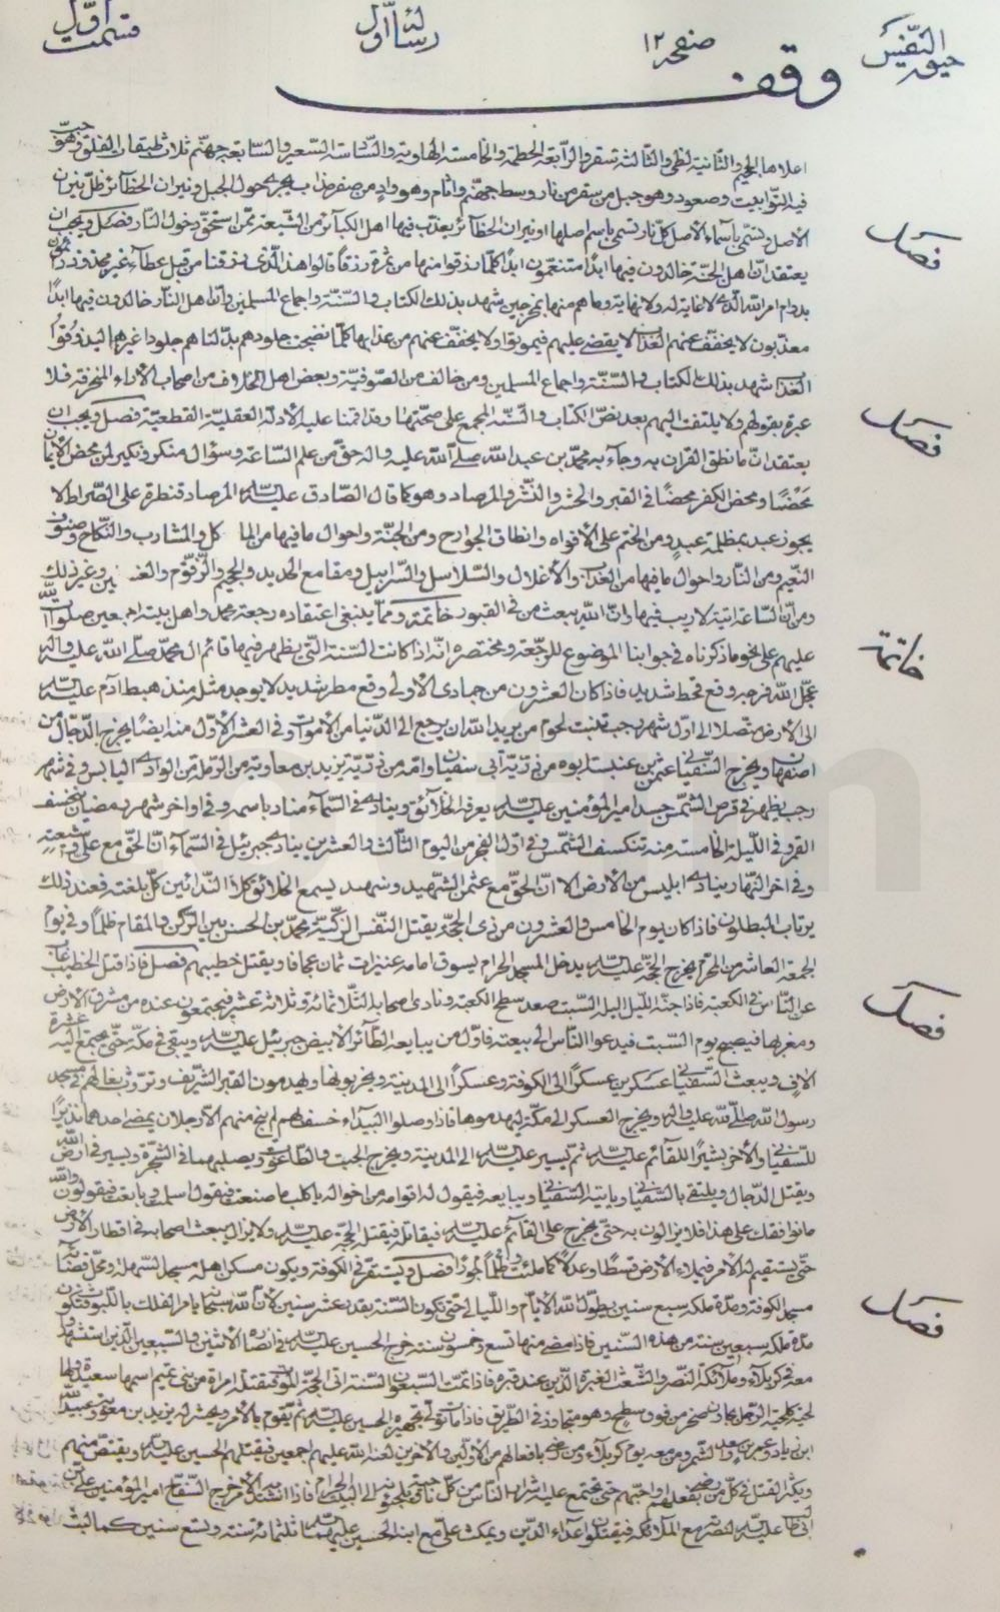 حيوة النفيس
صفحه ١٢
رسالة اول
قسمت اول
وقف
اعلاها الجحيم والثانية لظى والثالثة سقر والرابعة الحطمة والخامسة الهاوية والسادسة السعير والسابعة جهنم ثلاث طبقات الفلق وهو جب
فيه التوابيت وصعود وهو جبل من سقر من نار وسط جهنم واثام وهو واد من صفر مذاب يجرى حول الجبل ونيران الحظائر ظل نيران
الاصل وتسمى باسماء الاصل كل نار تسمى باسم اصلها او نيران الحظائر يعذب فيها اهل الكبائر من الشيعة ممن استحق دخول النار فصل ويجب ان
يعتقد ان اهل الجنة خالدون فيها ابدا متنعمون ابدا كلما رزقوا منها من ثمرة رزقا قالوا هذا الذى رزقنا من قبل عطاء غير مجذوذ
بدوام امر الله الذى لا غاية له ولا نهاية وما هم منها بمخرجين شهد بذلك الكتاب والسنة واجماع المسلمين وان اهل النار خالدون فيها ابدا
معذبون لا يخفف عنهم العذاب لا يقضى عليهم فيموتوا ولا يخفف عنهم من عذابها كلما نضجت جلودهم بدلناهم جلودا غيرها ليذوقوا
العذاب شهد بذلك الكتاب والسنة واجماع المسلمين ومن خالف من الصوفية وبعض اهل الخلاف من اصحاب الاراء المنحرفة فلا
عبرة بقولهم ولا يلتفت اليهم بعد نص الكتاب والسنة المجمع على صحتها وقد اقمنا عليه الادلة العقلية القطعية فصل ويجب ان
يعتقد ان ما نطق القران به وجاء به محمد بن عبد الله صلى الله عليه واله حق من علم الساعة وسؤال منكر ونكير لمن محض الايمان
محضا ومحض الكفر محضا فى القبر والحشر والنشر والمرصاد وهو كما قال الصادق عليه السلام المرصاد قنطرة على الصراط لا
يجوز عبد بمظلمة عبد ومن الختم على الافواه وانطاق الجوارح ومن الجنة واحوال ما فيها من الما كل والمشارب والنكاح وصنوف
النعيم ومن النار واحوال ما فيها من العذاب والاغلال والسلاسل والسرابيل ومقامع الحديد والحميم والزقوم والغسلين وغير ذلك
ومن ان الساعة اتية لا ريب فيها وان الله يبعث من فى القبور خاتمة ومما ينبغى اعتقاده رجعة محمد واهل بيته اجمعين صلوات الله
عليهم على نحو ما ذكرناه فى جوابنا الموضوع للرجعة ومختصره انه اذا كانت السنة التى يظهر فيها قائم ال محمد صلى الله عليه واله
عجل الله فرجه وقع قحط شديد فاذا كان العشرون من جمادى الاولى وقع مطر شديد لا يوجد مثله منذ هبط ادم عليه السلام
الى الارض متصلا الى اول شهر رجب تنبت لحوم من يريد الله ان يرجع الى الدنيا من الاموات وفى العشر الاول منه ايضا يخرج الدجال من
اصفهان ويخرج السفيانى عثمن بن عنبسة ابوه من ذرية ابى سفيان وامه من ذرية يزيد بن معاوية من الرملة من الوادى اليابس وفى شهر
رجب يظهر فى قرص الشمس جسد امير المؤمنين عليه السلام يعرفه الخلائق وينادى فى السماء مناد باسمه وفى اواخر شهر رمضان ينخسف
القمر وفى الليلة الخامسة منه تنكسف الشمس وفى اول الفجر من اليوم الثالث والعشرين ينادى جبرئيل فى السماء ان الحق مع على وشيعته
وفى اخر النهار ينادى ابليس من الارض الا ان الحق مع عثمن الشهيد وشيعته يسمع الخلائق كلا النداءين كل بلغته فعند ذلك
يرتاب المبطلون فاذا كان يوم الخامس والعشرون من ذى الحجة يقتل النفس الزكية محمد بن الحسن بين الركن والمقام ظلما وفى يوم
الجمعة العاشر من المحرم يخرج الحجة عليه السلام يدخل المسجد الحرام يسوق امامه عنيزات ثمان عجافا ويقتل خطيبهم فصل فاذا قتل الخطيب غاب
عن الناس فى الكعبة فاذا جنه الليل ليلة السبت صعد سطح الكعبة ونادى اصحابه الثلاثمائة وثلاثة عشر فيجتمعون عنده من مشرق الارض
ومغربها فيصبح يوم السبت فيدعو الناس الى بيعته فاول من يبايعه الطائر الابيض جبرئيل عليه السلام ويبقى فى مكة حتى يجتمع اليه عشرة
الاف ويبعث السفيانى عسكرين عسكرا الى الكوفة وعسكرا الى المدينة ويخربونها ويهدمون القبر الشريف وتروث بغالهم فى مسجد
رسول الله صلى الله عليه واله ويخرج العسكر الى مكة ليهدموها فاذا وصلوا البيداء خسف بهم لم ينج منهم الا رجلان يمضى احدهما نذيرا
للسفيانى والاخر بشيرا للقائم عليه السلام ثم يسير عليه السلام الى المدينة ويخرج الجبت والطاغوت ويصلبهما فى الشجرة ويسير فى ارض الله
ويقتل الدجال ويلتقى بالسفيانى وياتيه السفيانى ويبايعه فيقول له اقوامه من اخواله يا كلب ما صنعت فيقول اسلمت وبايعت فيقولون والله
ما نوافقك على هذا فلا يزالون به حتى يخرج على القائم عليه السلام فيقاتله فيقتله الحجة عليه السلام ولا يزال يبعث اصحابه فى اقطار الارض
حتى يستقيم له الامر فيملا الارض قسطا وعدلا كما ملئت ظلما وجورا فصل ويستقر فى الكوفة ويكون مسكن اهله مسجد السهلة ومحل قضائه
مسجد الكوفة ومدة ملكه سبع سنين يطول الله الايام والليالى حتى تكون السنة بقدر عشر سنين لان الله سبحانه يامر الفلك باللبوث فتكون
مدة ملكه سبعين سنة من هذه السنين فاذا مضى منها تسع وخمسون سنة خرج الحسين عليه السلام فى انصاره الاثنين والسبعين الذين استشهدوا
معه فى كربلاء وملائكة النصر والشعث الغبر الذين عند قبره فاذا تمت السبعون السنة اتى الحجة الموت فتقتله امراة من بنى تميم اسمها سعيدة ولها
لحية كلحية الرجل بجاون صخر من فوق سطح وهو متجاوز فى الطريق فاذا مات تولى تجهيزه الحسين عليه السلام ثم يقوم بالامر ويحشر له يزيد بن معوية وعبيد الله
ابن زياد وعمر بن سعد والشمر ومن معهم يوم كربلاء ومن رضى بافعالهم من الاولين والاخرين لعنة الله عليهم اجمعين فيقتلهم الحسين عليه السلام ويقتص منهم
ويكثر القتل فى كل من رضى بفعلهم او احبهم حتى تجتمع عليه اشرار الناس من كل ناحية ويلجئونه الى البيت الحرام فاذا اشتد به الامر خرج السفاح امير المؤمنين على بن
ابى طالب عليه السلام لنصرته مع الملائكة فيقتلون اعداء الدين ويمكث على مع ابنه الحسين عليهما السلام ثلثمائة سنة وتسع سنين كما لبث
فصل
فصل
خاتمة
فصل
فصل